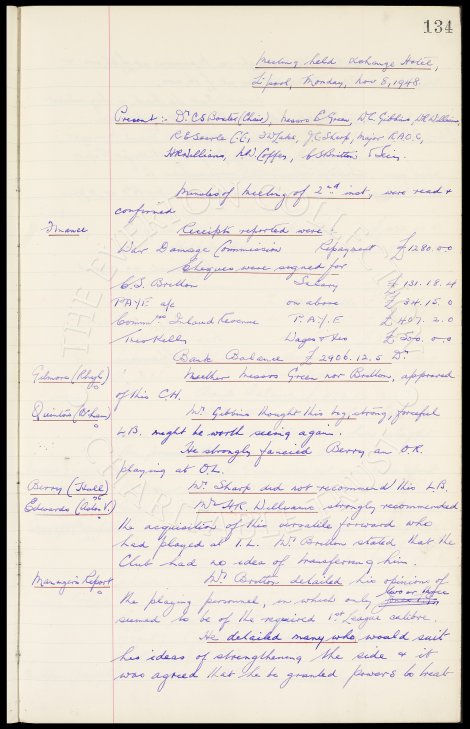 134
Meeting held Exchange Hotel,
L'pool, Monday, Nov 8, 1948.
Present:- Dr. C S Baxter (Chair), Messrs E Green, W C Gibbins, D R Williams,
R E Searle C.C., T W Lake, J C Sharp, Major R A O C,
H R Williams, N W Coffey, C S Britton & Secy.
Minutes of Meeting of 2nd inst, were read &
confirmed
Finance Receipts reported were:
War Damage Commission Repayment £1280.0.0
Cheques were signed for
C. S. Britton Salary £131.18.4
P.A.Y.E a/c on above £34.15.0
Commrs Inland Revenue P.A.Y.E £407.2.0
Theo Kelly Wages & Exs £500.0.0
Bank Balance £2906.12.5 Dr
Gilmore (Rhyl) Neither Messrs Green nor Britton, approved
of this C.H.
Quinton (B'ham) Mr. Gibbins thought this big, strong, forceful
L.B. might be worth seeing again.
He strongly fancied Berry an O.R.
playing at O.L.
Berry (Hull) Mr. Sharp did not recommend this L.B.
Edwards (Aston V.) Mr. H.R. Williams strongly recommended
the acquisition of this versatile forward who
had played at I.L. Mr. Britton stated that the
Club had no idea of transferring him.
Manager's Report Mr. Britton detailed his opinion of
the playing personnel, in which only two or three
seemed to be of the required 1st League calibre.
He detailed many who would suit
his ideas of strengthening the side & it
was agreed that he be granted powers to treat
THE EVERTON COLLECTION
CHARITABLE TRUST